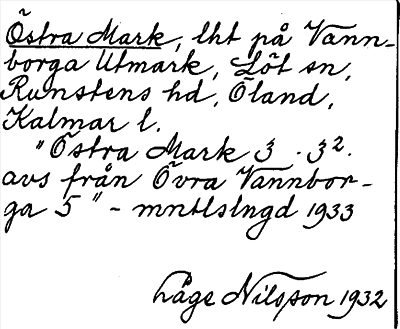 Östra Mark, lht på Vann-
borga Utmark, Löt sn,
Runstens hd, Öland,
Kalmar l.
"Östra Mark 3 . 3².
avs från Övra Vannbor-
ga 5" - mntlslngd 1933
Låge Nilsson 1932